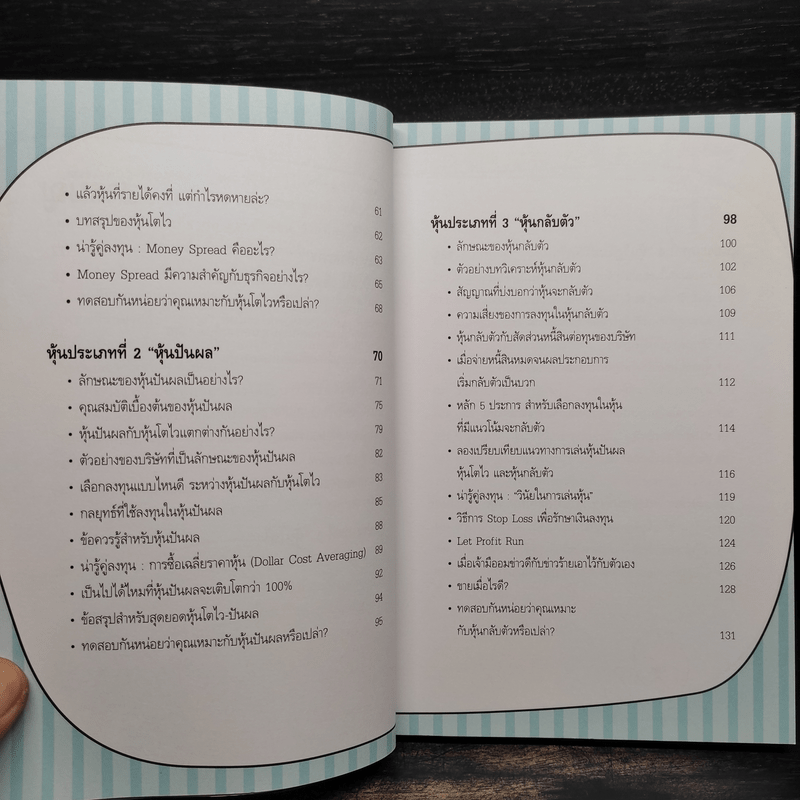 • แล้วหุ้นที่รายได้คงที่ แต่กำไรหดหายล่ะ? 61
• บทสรุปของหุ้นโตไว 62
• น่ารู้คู่ลงทุน : Money Spread คืออะไร? 63
• Money Spread มีความสำคัญกับธุรกิจอย่างไร? 65
• ทดสอบกันหน่อยว่าคุณเหมาะกับหุ้นโตไวหรือเปล่า? 68
หุ้นประเภทที่ 2 “หุ้นปันผล” 70
• ลักษณะของหุ้นปันผลเป็นอย่างไร? 71
• คุณสมบัติเบื้องต้นของหุ้นปันผล 75
• หุ้นปันผลกับหุ้นโตไวแตกต่างกันอย่างไร? 79
• ตัวอย่างของบริษัทที่เป็นลักษณะของหุ้นปันผล 82
• เลือกลงทุนแบบไหนดี ระหว่างหุ้นปันผลกับหุ้นโตไว 83
• กลยุทธ์ที่ใช้ลงทุนในหุ้นปันผล 85
• ข้อควรรู้สำหรับหุ้นปันผล 88
• น่ารู้คู่ลงทุน : การซื้อเฉลี่ยราคาหุ้น (Dollar Cost Averaging) 89
• เป็นไปได้ไหมที่หุ้นปันผลจะเติบโตกว่า 100% 92
• ข้อสรุปสำหรับสุดยอดหุ้นโตไว-ปันผล 94
• ทดสอบกันหน่อยว่าคุณเหมาะกับหุ้นปันผลหรือเปล่า? 95
หุ้นประเภทที่ 3 “หุ้นกลับตัว” 98
• ลักษณะของหุ้นกลับตัว 100
• ตัวอย่างบทวิเคราะห์หุ้นกลับตัว 102
• สัญญาณที่บ่งบอกว่าหุ้นจะกลับตัว 106
• ความเสี่ยงของการลงทุนในหุ้นกลับตัว 109
• หุ้นกลับตัวกับสัดส่วนหนี้สินต่อทุนของบริษัท 111
• เมื่อจ่ายหนี้สินหมดจนผลประกอบการ
เริ่มกลับตัวเป็นบวก 112
• หลัก 5 ประการ สำหรับเลือกลงทุนในหุ้น
ที่มีแนวโน้มจะกลับตัว 114
• ลองเปรียบเทียบแนวทางการเล่นหุ้นปันผล
หุ้นโตไว และหุ้นกลับตัว 116
• น่ารู้คู่ลงทุน : “วินัยในการเล่นหุ้น” 119
• วิธีการ Stop Loss เพื่อรักษาเงินลงทุน 120
• Let Profit Run 124
• เมื่อเจ้ามือออมข่าวดีกับข่าวร้ายเอาไว้กับตัวเอง 126
• ขายเมื่อไรดี? 128
• ทดสอบกันหน่อยว่าคุณเหมาะ
กับหุ้นกลับตัวหรือเปล่า? 131